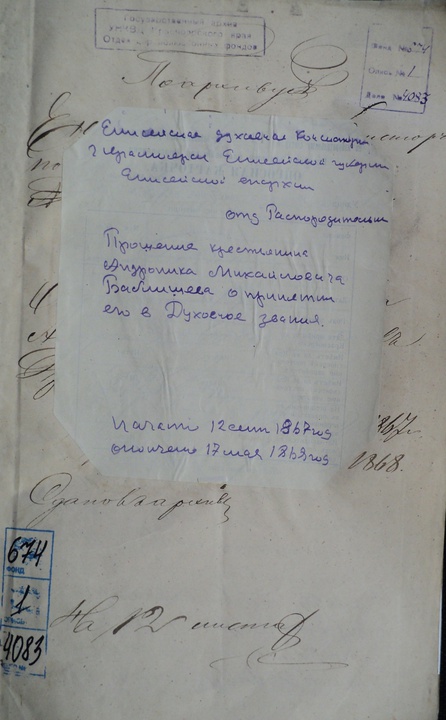 Государственный архив
УМВД Красноярского края
Отдел фондов
Фонд № 674
Опись № 1
Дело № 4083
По архиву
Енисейская духовная Консистория
г Красноярск Енисейской губернии
Енисейской епархии
отд Распорядительн
Прошение крестьянина
Андроника Михайловича
Бабишева о принятии
его в Духовное звание.
Начато 12 сент 1867 год
окончено 17 мая 1868 год
867 г.
1868.
Сдано в архив
674
фонд
1
4083
На 12 листах